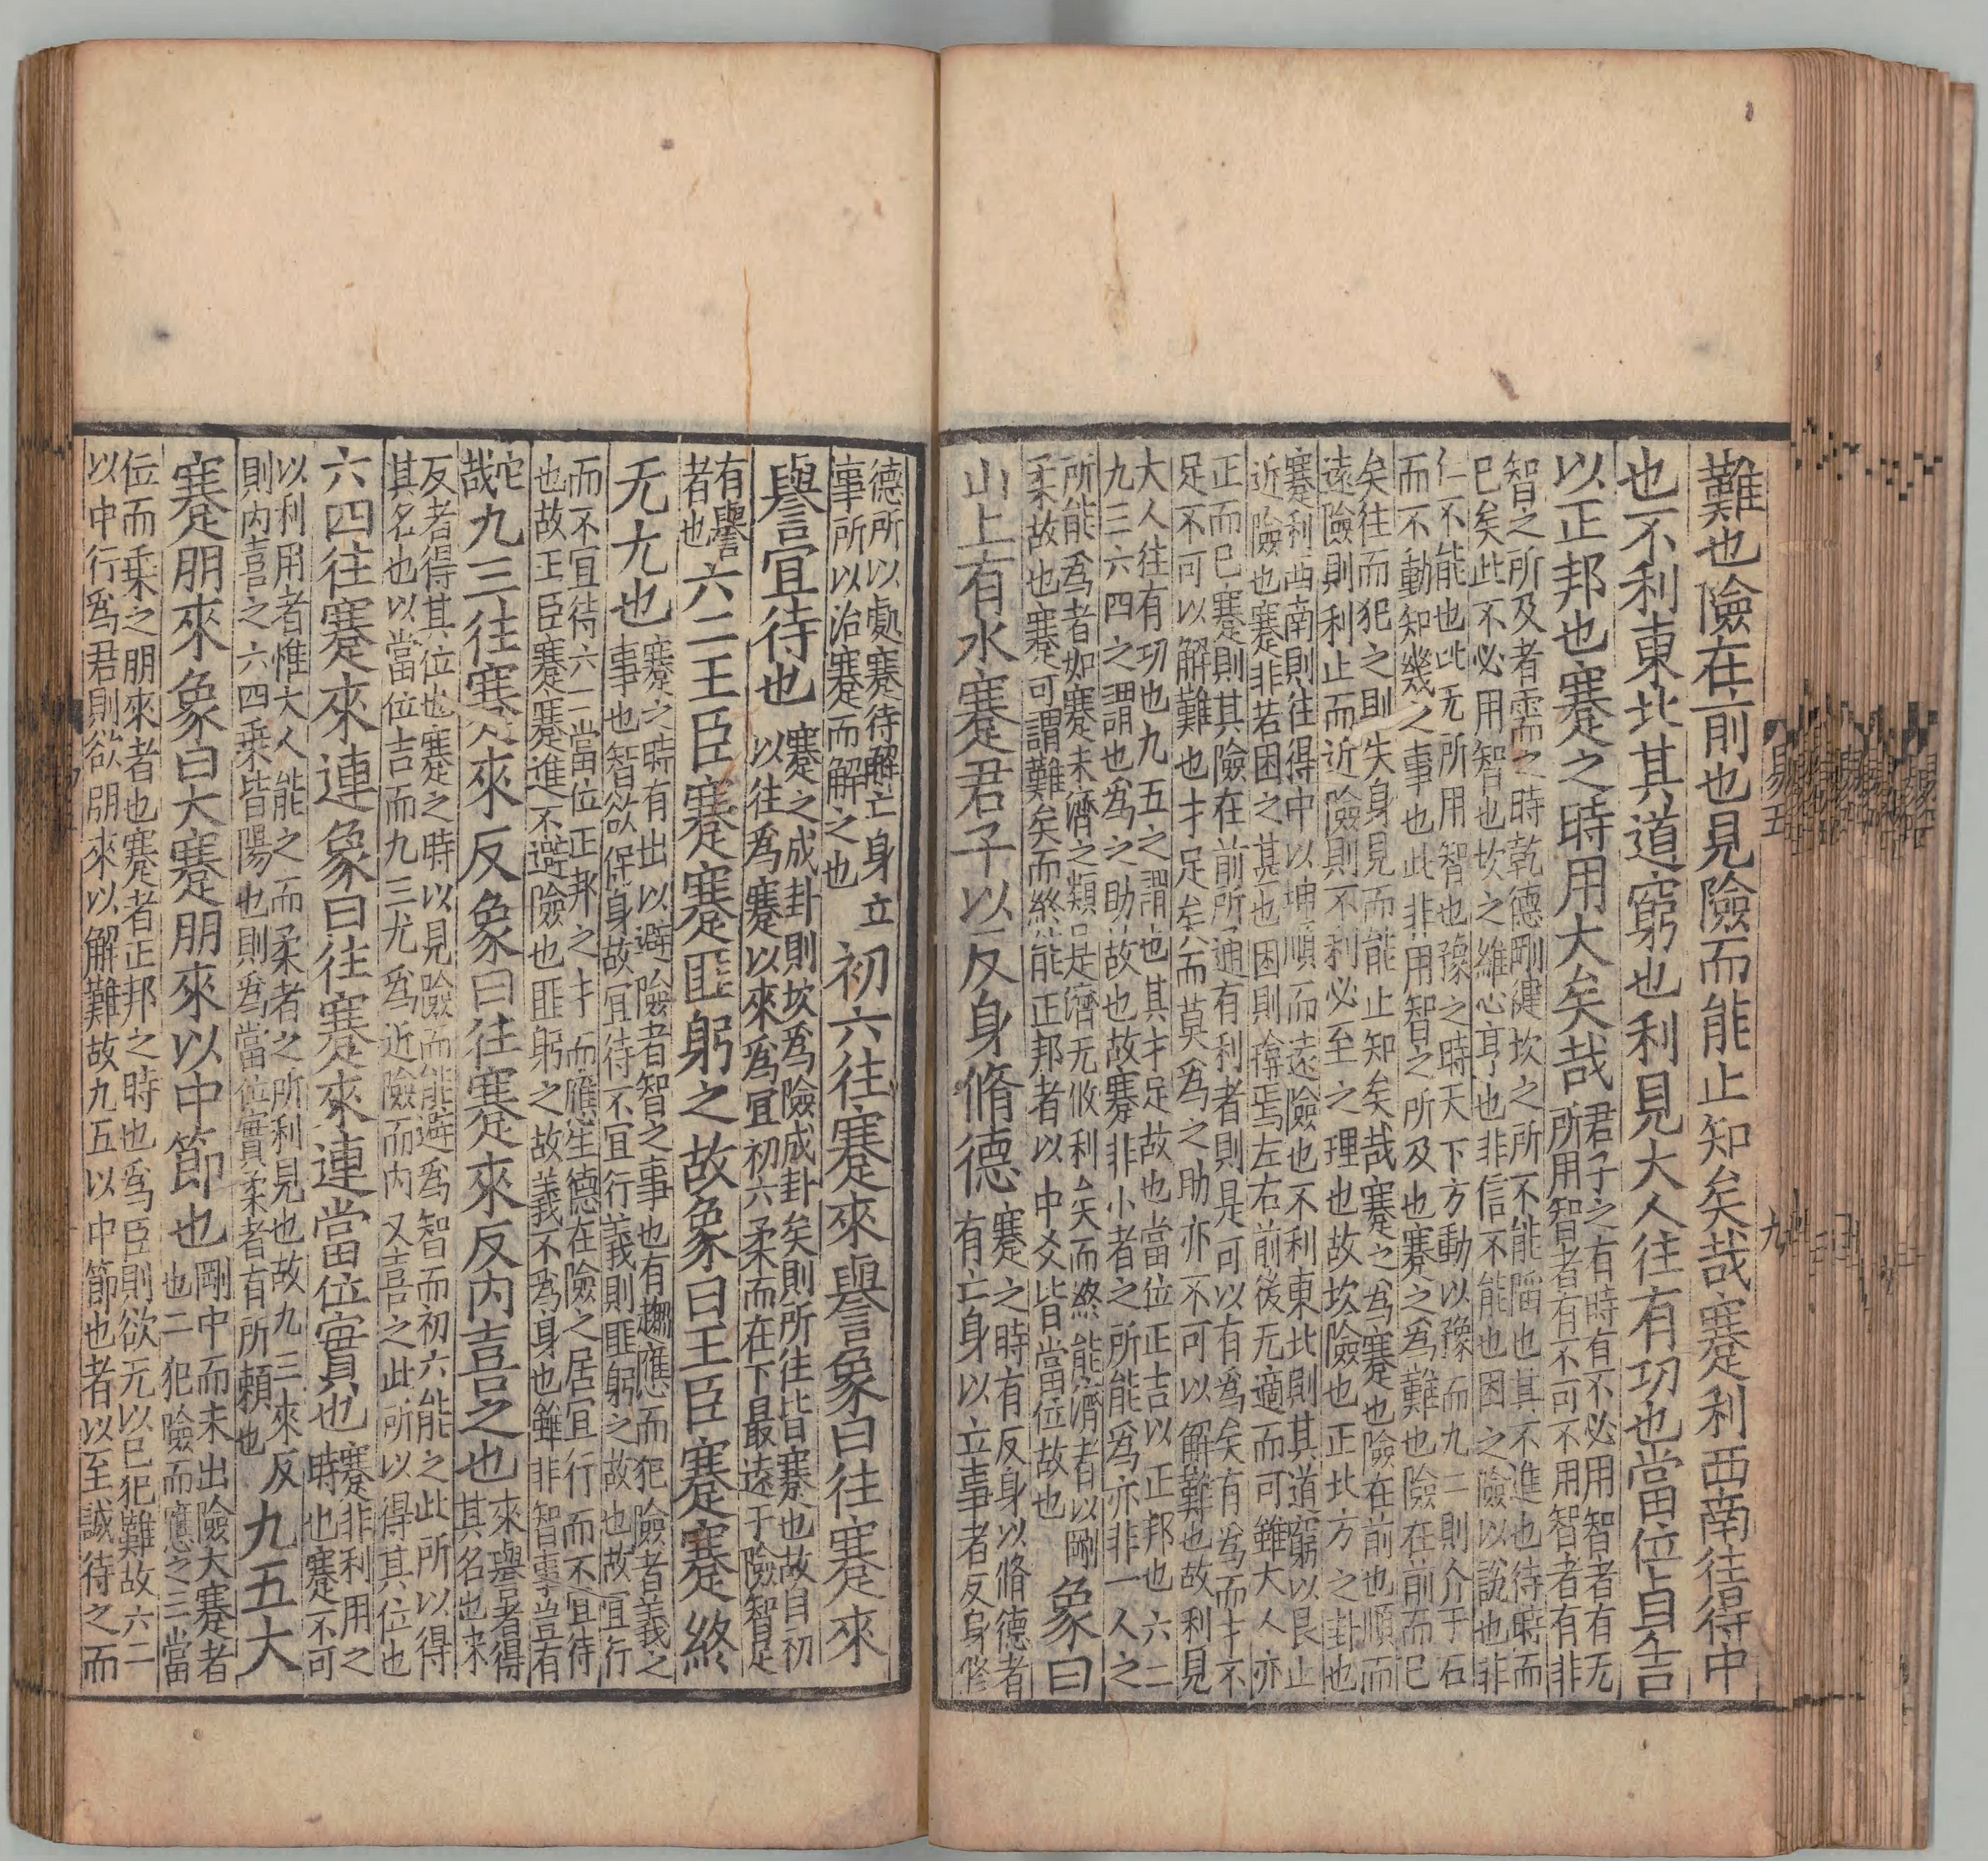 難也險在前也見險而能止知矣哉蹇利西南往得中
也不利東北其道窮也利見大人往有功也當位貞吉
以正邦也蹇之時用大矣哉
君子之有時有不必用智者有无
所用智者有不可不用智者有非
智之所及者需之時乾德剛健坎之所不能陷也其不進也待時而
已矣此不必用智也坎之維心亨也非信不能也困之險以說也非
仁不能也此无所用智也豫之時天下方動以豫而九二則介于石
而不動知幾之事也此非用智之所及也蹇之爲難也險在前而已
矣往而犯之則失身見而能止知矣哉蹇之爲蹇也險在前也順而
遠險則利止而近險則不利必至之理也故坎險也正北方之卦也
蹇利西南則往得中以坤順而遠險也不利東北則其道窮以艮止
近險也蹇非若困之甚也困則揜焉左右前後无適而可雖大人亦
正而已蹇則其險在前所通有利者則是可以有爲矣有爲而才不
足不可以解難也才足矣而莫爲之助亦不可以解難也故利見
大人往有功也九五之謂也其才足故也當位正吉以正邦也六二
九三六四之謂也爲之助故也故蹇非小者之所能爲亦非一人之
所能爲者如蹇未濟之類是濟无攸利矣而終能濟者以剛
柔故也蹇可謂難矣而終能正邦者以中爻皆當位故也
象曰
山上有水蹇君子以反身脩德
蹇之時有反身以脩德者
有亡身以立事者反身脩
德所以處蹇待解亡身立
事所以治蹇而解之也
初六往蹇來譽象曰往蹇來
譽宜待也
蹇之成卦則坎爲險成卦矣則所往皆蹇也故自初
以往爲蹇以來爲宜初六柔而在下最遠于險智足
有譽
者也
六二王臣蹇蹇匪躬之故象曰王臣蹇蹇終
无尤也
蹇之時有出以避險者智之事也有趣應而犯險者義之
事也智欲保身故宜待不宜行義則匪躬之故也故宜行
而不宜待六二當位正邦之才而應生德在險之居宜行而不宜待
也故王臣蹇蹇進不避險也匪躬之故義不爲身也雖非智事豈有
它
哉
九三往蹇來反象曰往蹇來反内喜之也
來譽者得
其名也來
反者得其位也蹇之時以見險而能避爲智而初六能之此所以得
其名也以當位吉而九三尤爲近險而内又喜之此所以得其位也
六四往蹇來連象曰往蹇來連當位實也
蹇非利用之
時也蹇不可
以利用者惟大人能之而柔者之所利見也故九三來反
則内喜之六四乘皆陽也則爲當位實柔者有所賴也
九五大
蹇朋來象曰大蹇朋來以中節也
剛中而未出險大蹇者
也二犯險而應之三當
位而乘之朋來者也蹇者正邦之時也爲臣則欲无以已犯難故六二
以中行爲君則欲朋來以解難故九五以中節也者以至誠待之而
易五
九